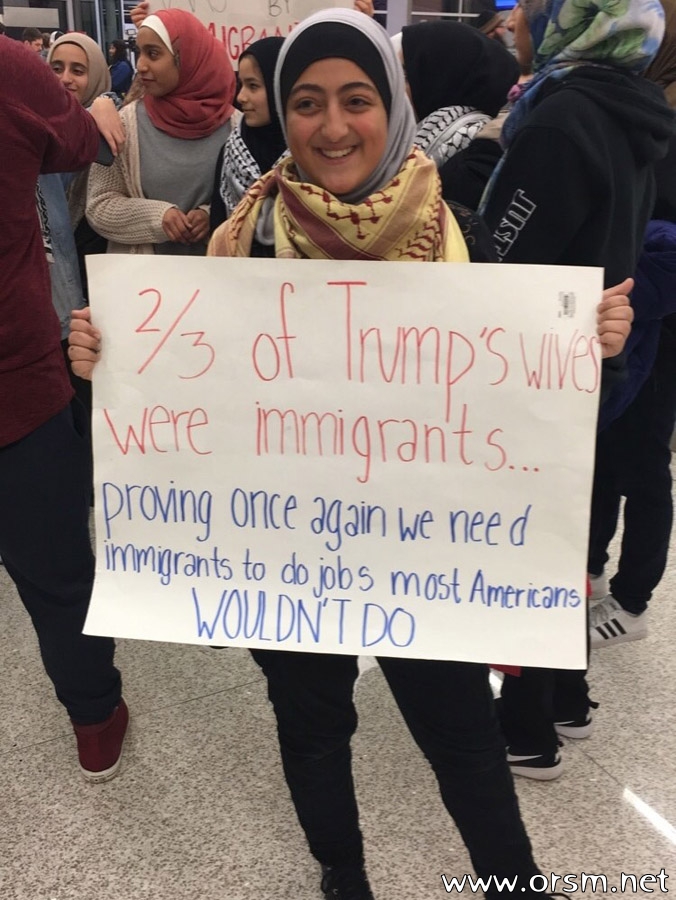 BY
IMMIGRA
2/3 of Trump's wives
were immigrants...
proving once again we need
immigrants to do jobs most Americans
WOULDN'T DO
www.orsm.net